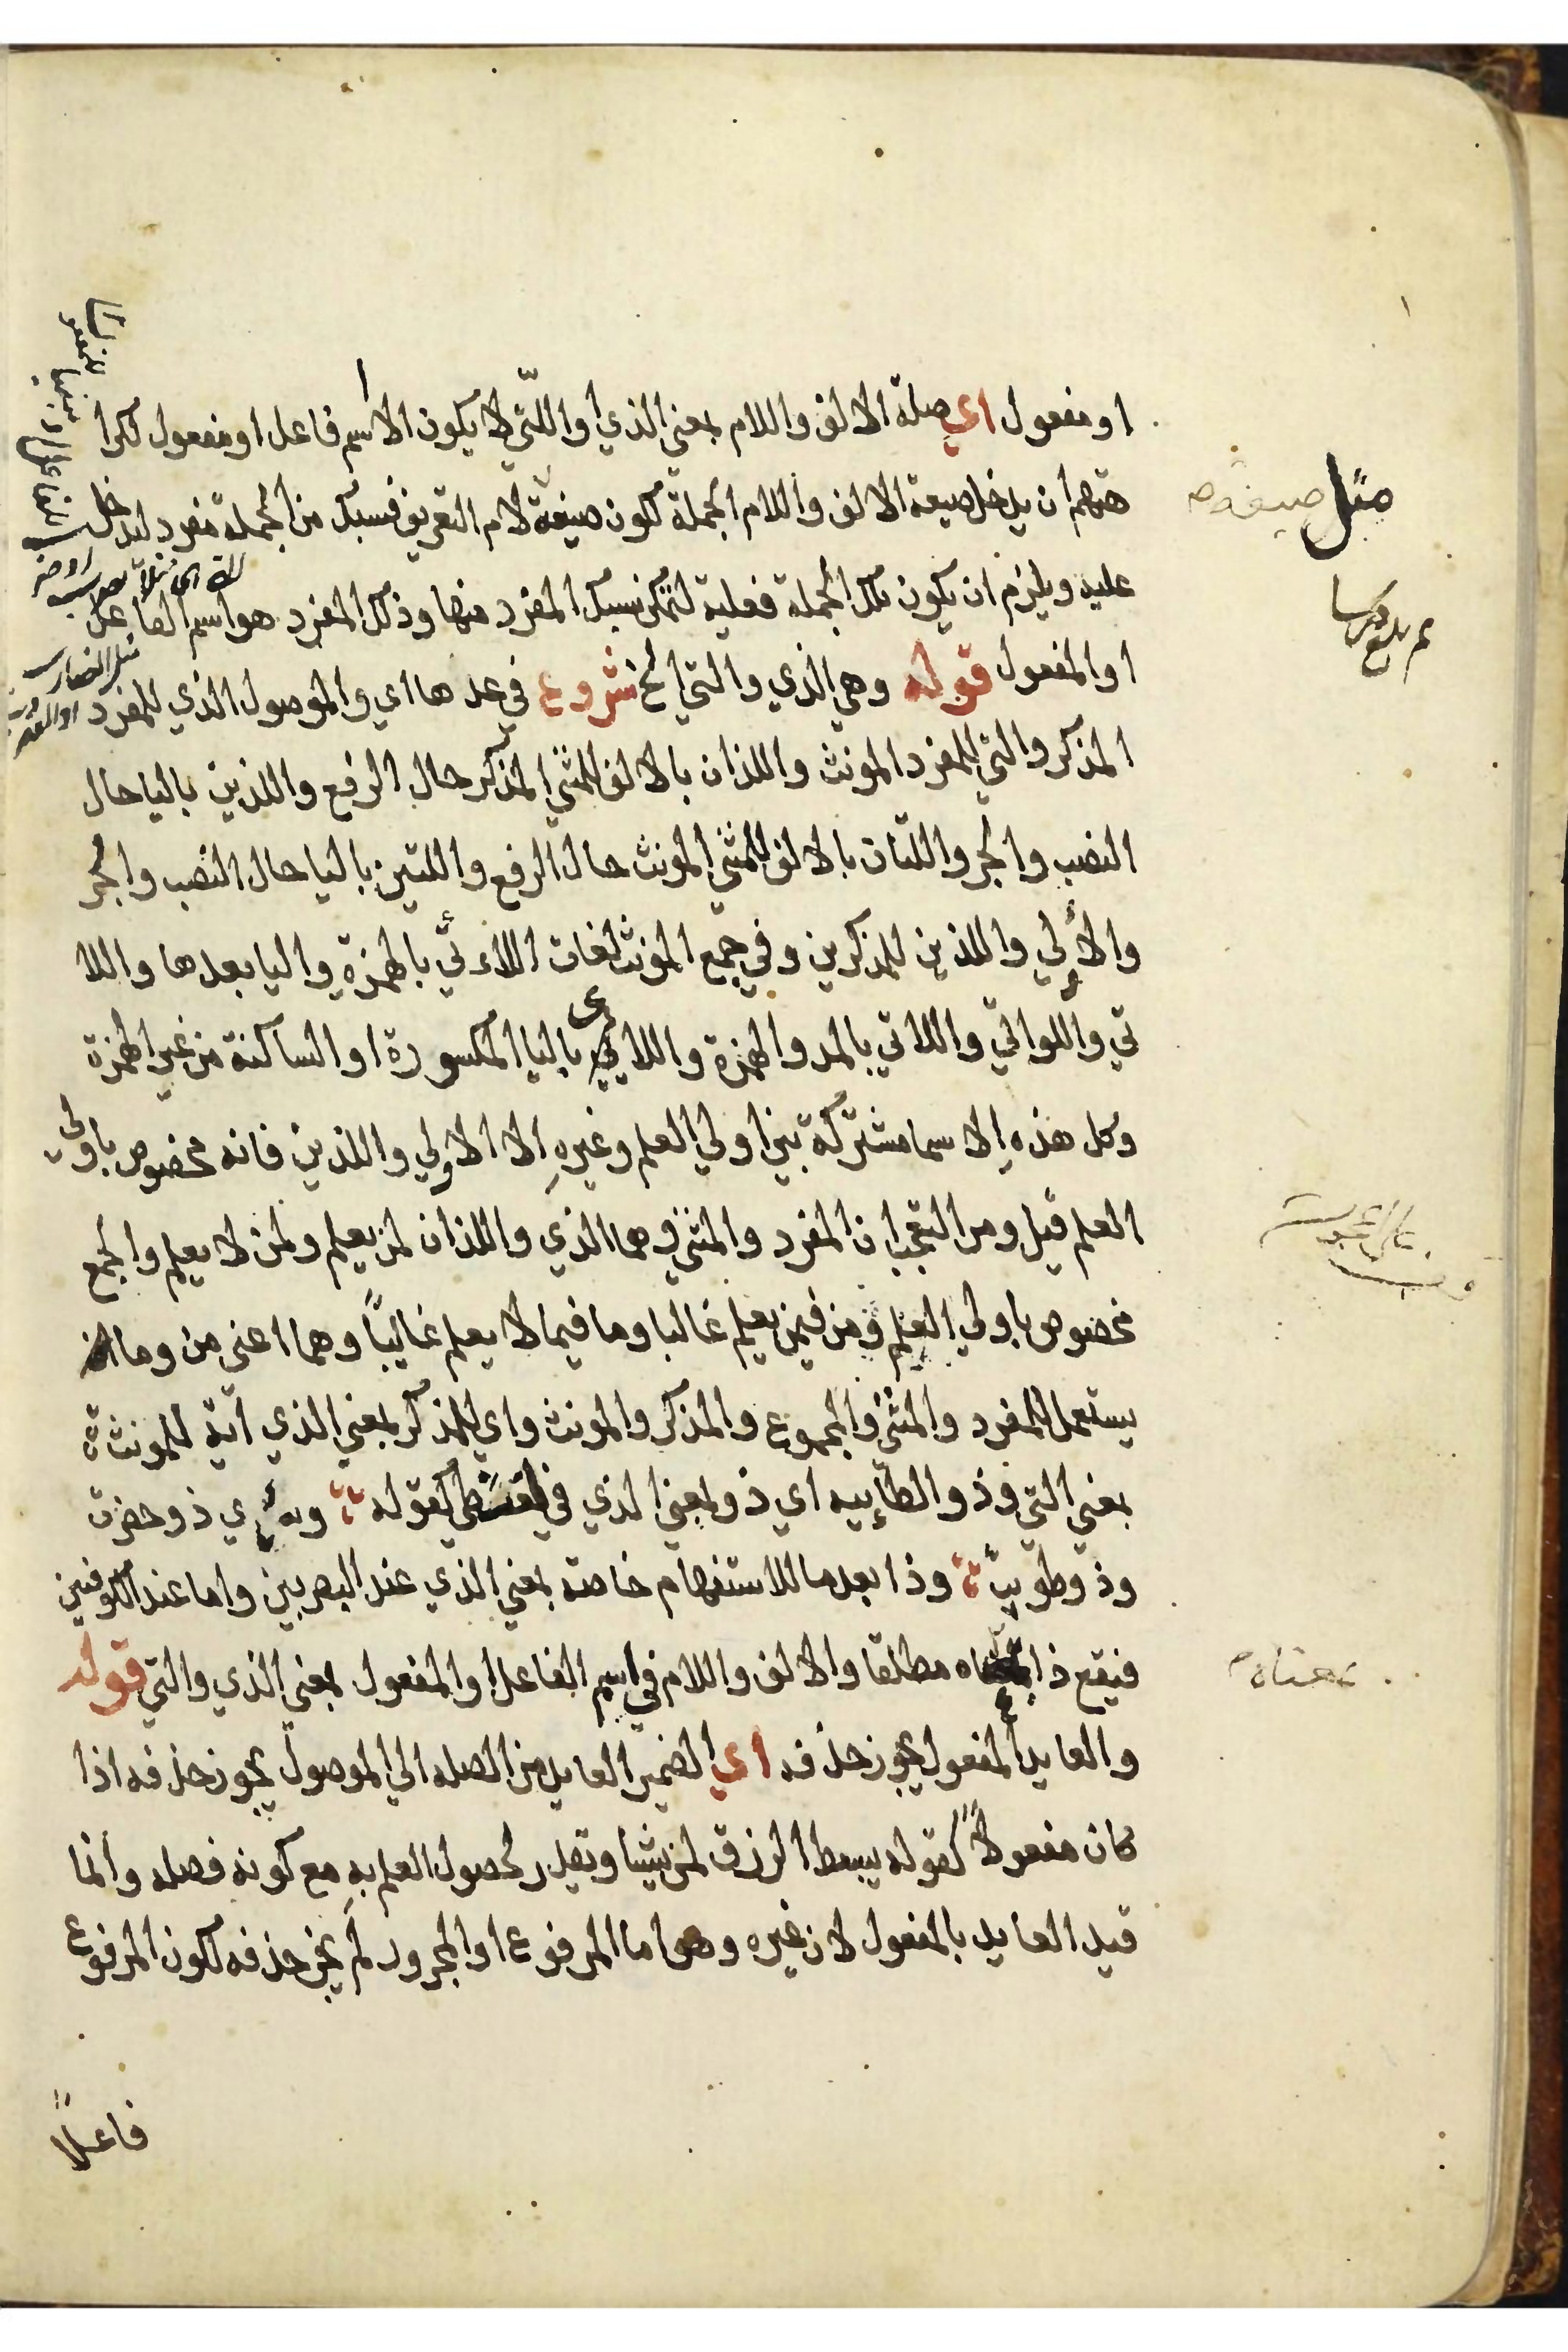 او مفعول اي صلة الالف واللام بمعني الذي او اللتي لا يكون الا اسم فاعل او مفعول لكرا
هتهم ان يدخل صيغة الالف واللام الجملة لكون صيغة لام التعريف فسبك من الجملة مفرد ليدخل
عليه ويلزم ان يكون تلك الجملة فعلية لتمكن سبك المفرد منها وذلك المفرد هو اسم الفاعل
او المفعول قوله وهي الذي والتي الخ شروع في عدها اي والموصول الذي للمفرد
المذكر والتي للمفرد المونث واللذان بالالف للمثني المذكر حال الرفع واللذين باليا حال
النصب والجر واللتان بالالف للمثني المونث حال الرفع واللتين باليا حال النصب والجر
والأُلي والذين للمذكرين وفي جمع المونث لغات اللاءتي بالهمزة واليا بعدها واللا
تي واللواتي واللائي بالمد والهمزة واللايي باليا المكسورة او الساكنة من غير الهمزة
وكل هذه الاسما مشتركة بين اولي العلم وغيره الا الاولي واللذين فانه مخصوص باولي
العلم قيل ومن التعجب ان المفرد والمثني وهما الذي واللذان لمن يعلم ولمن لا يعلم والجمع
مخصوص باولي العلم ومن فيمن يعلم غالبا وما فيما لا يعلم غاليبًا وهما اعني من وما
يستعمل للمفرد والمثني والمجموع والمذكر والمونث واي للمذكر بمعني الذي اية للمونثة
بمعني التي وذو الطاييه اي ذو بمعني الذي في لغة طي كقوله وبيري ذو حفرت
وذو طويت وذا بعد ما للاستفهام خاصة بمعني الذي عند البصريين واما عند الكوفيين
فيقع ذا بمعناه مطلقا والالف واللام في اسم الفاعل او المفعول بمعني الذي والتي قوله
والعايد المفعول يجوز حذفه اي الضمير العايد من الصله الي الموصول يجوز حذفه اذا
كان مفعولاً كقوله يبسط الرزق لمن يشا ويقدر لحصول العلم به مع كونه فضله وانما
قيد العايد بالمفعول لان غيره وهو اما المرفوع او المجرور لم يجز حذفه لكون المرفوع
فاعلاً
مثل صيغة
بمعناه